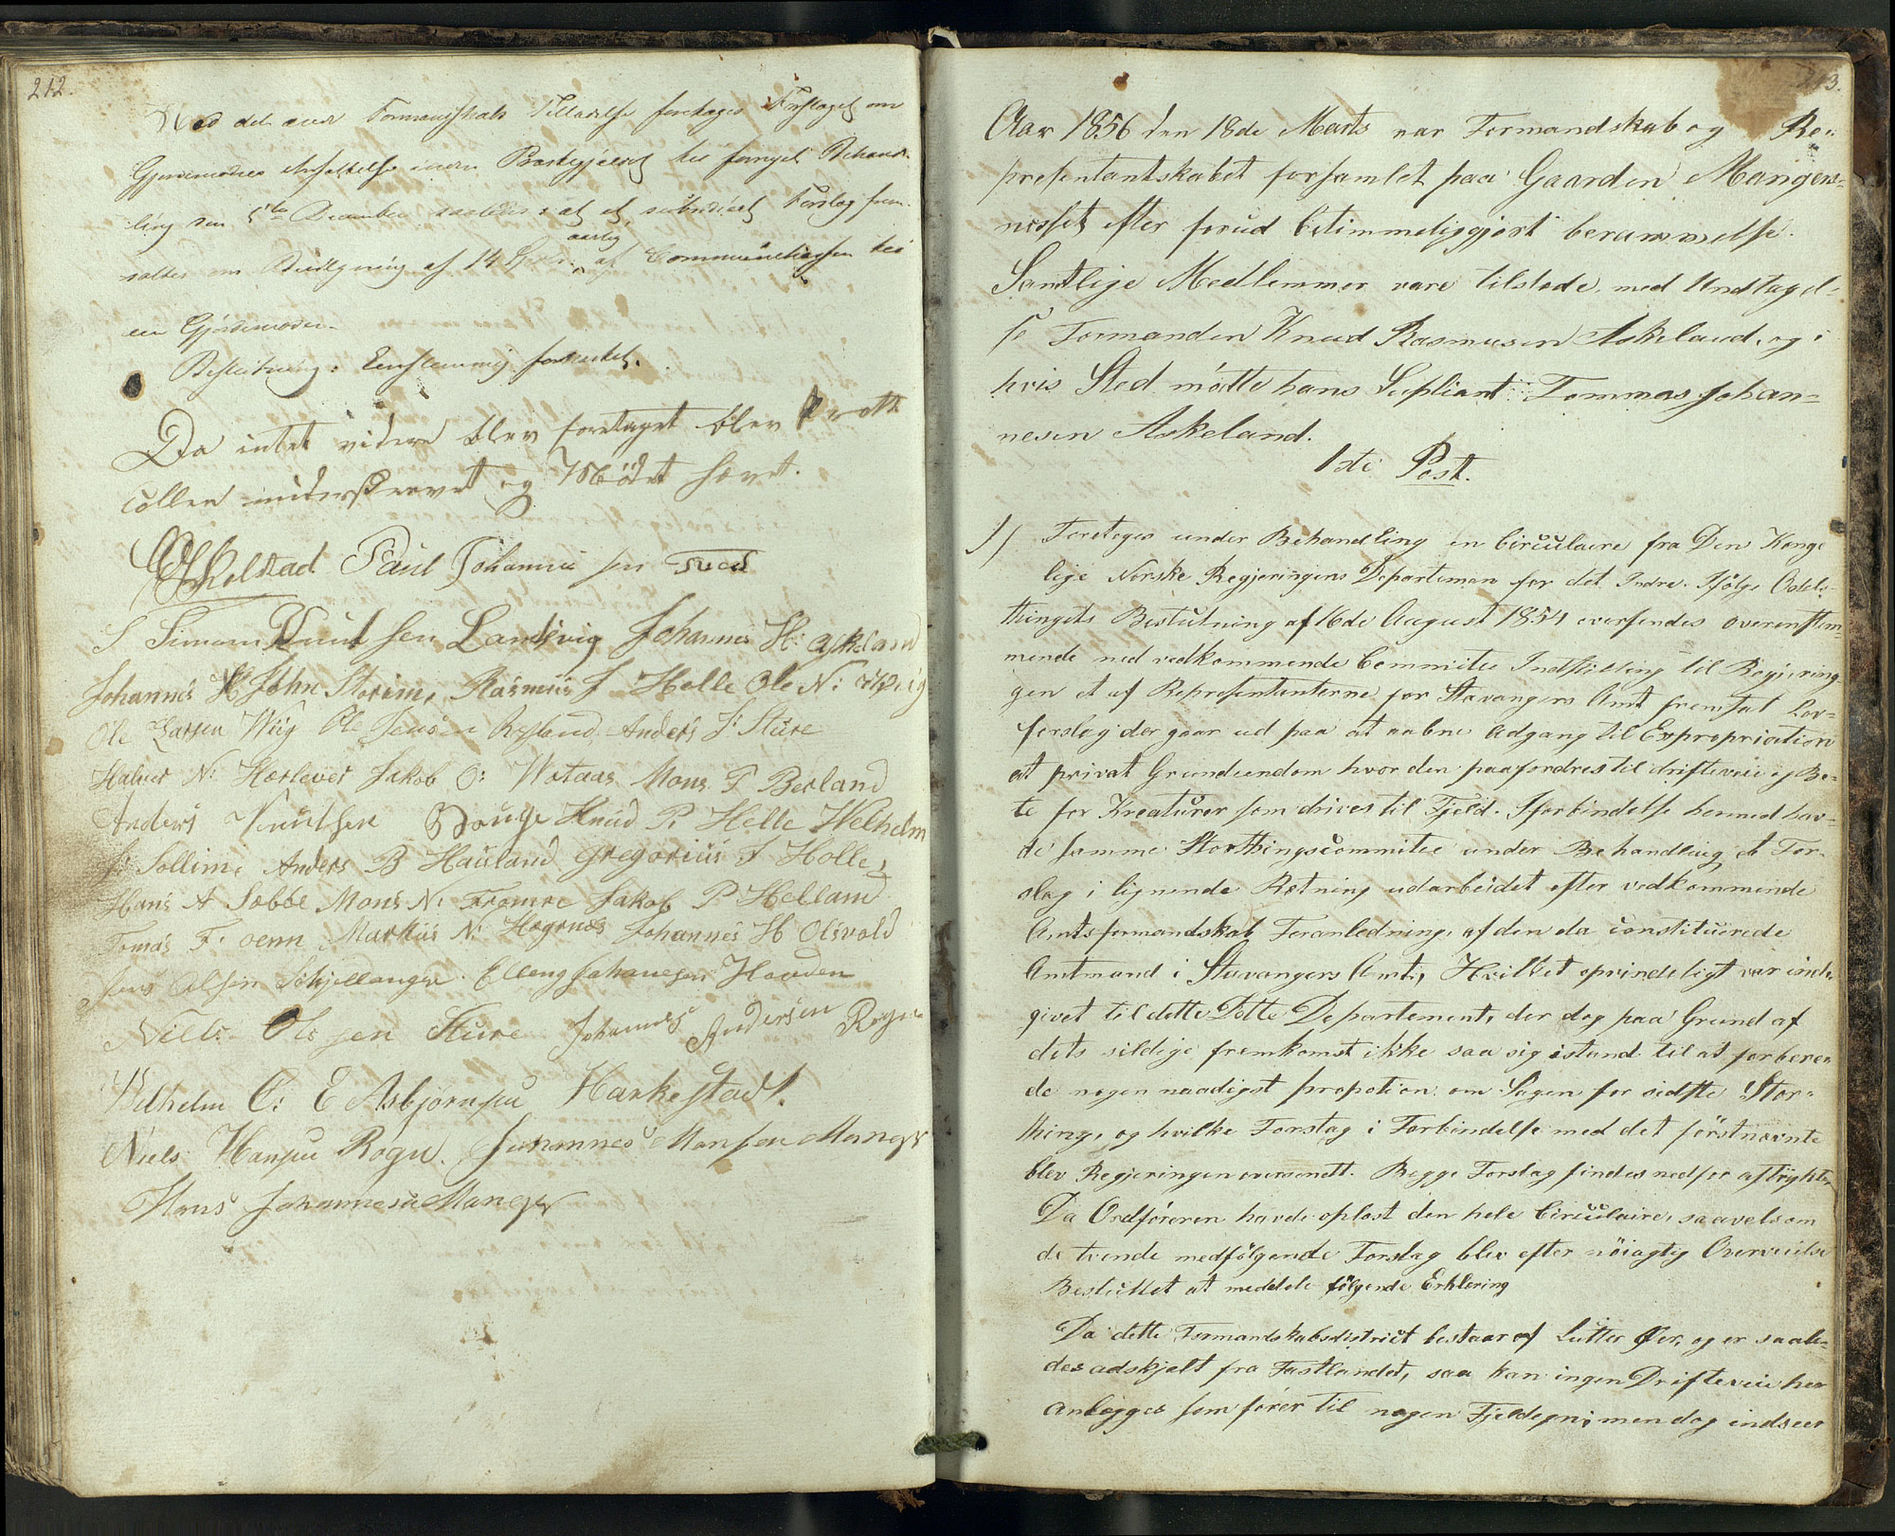 212.
Med det ældre Formandskabs Tilladelse foretages Forslaget om
Gjordemødres Ansættelse iværn Præstegjeld til fornyet Behand-
ling den 5te December saaledes: at et subsidiært Forslag frem-
sattes om Bevilgning af 14 Spd. aarlig af Communekassen til
en Gjordemoder.
Beslutning: Eenstemmig forkastet.
Da intet videre blev foretaget blev Prott
collen underskrevet og Mödet hævet.
Paul Johannessen Tved
S Simon Knut sen Landsvig Johannes H: Askeland
Johannes H John Storim, Rasmus J Helle Ole N:
Ole Larsen Wiig Ole Jensen Rysland Anders J: Sture
Halver N: Herlever Jakob O: Wataas Mons T Berland
Anders Knutsen Houge Knud R Helle Welhelm
J: Sollim, Anders B Hauland Gregorius J Holle,
Hans A Sæbbe Mons N: Fromre Jakob P Helland
Tomas F: oenn Markus N: Høgenes Johannes H Olsvold
Jens Olsen Schjellanger Elleng Johanesen Houden
Nills Olssen Sture Johannes Andersen Rogne
Wilhelm C: E Asbjørnsen Harkestad.
Niels Hansen Rogn. Johannes Monsen Manger
Hans Johannesen Manger
213.
Aar 1856 den 18de Marts var Formandskab og Re-
presentantskabet forsamlet paa Gaarden Manger-
nesset efter forud betimmeliggjort berammelse.
Samtlige Medlemmer vare tilstede, med Undtagel-
se Formanden Knud Rasmusen Askeland, og i
hvis Sted mötte hans Supliant Tommas Johan-
nesen Askeland.
1ste Post.
1) Foretoges under Behandling en Circulaire fra Den Konge
lige Norske Regjerings Departemen for det Indre. Ifölge Odels-
thingets Beslutning af 16de August 1854 oversendes overenstem-
mende med vedkommende Committes Indstilling til Regjerin-
gen et af Representanterne for Stavangers Amt fremsat Lov-
forslag der gaar ud paa at aabne Adgang til Expropriation
at privat Grundeiendom hvor den paafordres til driftevie og Be-
te for Kreaturer som drives til Fjeld. I forbindelse hermed hav-
de samme Storthingscommitee under Behandling et For-
slag i lignende Retning udarbeidet efter vedkommende
Amtsformandskab Foranledning, af den da constituerede
Amtmand i Stavangers Amt, Hvilket oprindeligt var ind-
givet til dette Dette Departement, der dog paa Grund af
dets sildige fremkomst ikke saa sig istand til at forbere-
de nogen naadigst propotion om Sagen for sidste Stor-
thing, og hvilke Forslag i Forbindelse med det förstnævnte
blev Regjeringen oversendt. Begge Forslag findes nedfor aftrykte
Da Ordföreren havde oplæst den hele Circulaire, saavelsom
de tvende medfölgende Forslag blev efter nöiagtig Overveielse
Besluttet at meddele fölgende Erklæring
Da dette Formandskabsdistrict bestaar af Lutter Øer, og er saale-
des adskjelt fra Fastlandet, saa kan ingen Driftevie her
anlægges som förer til nogen Fjeldegn; men dog indseer